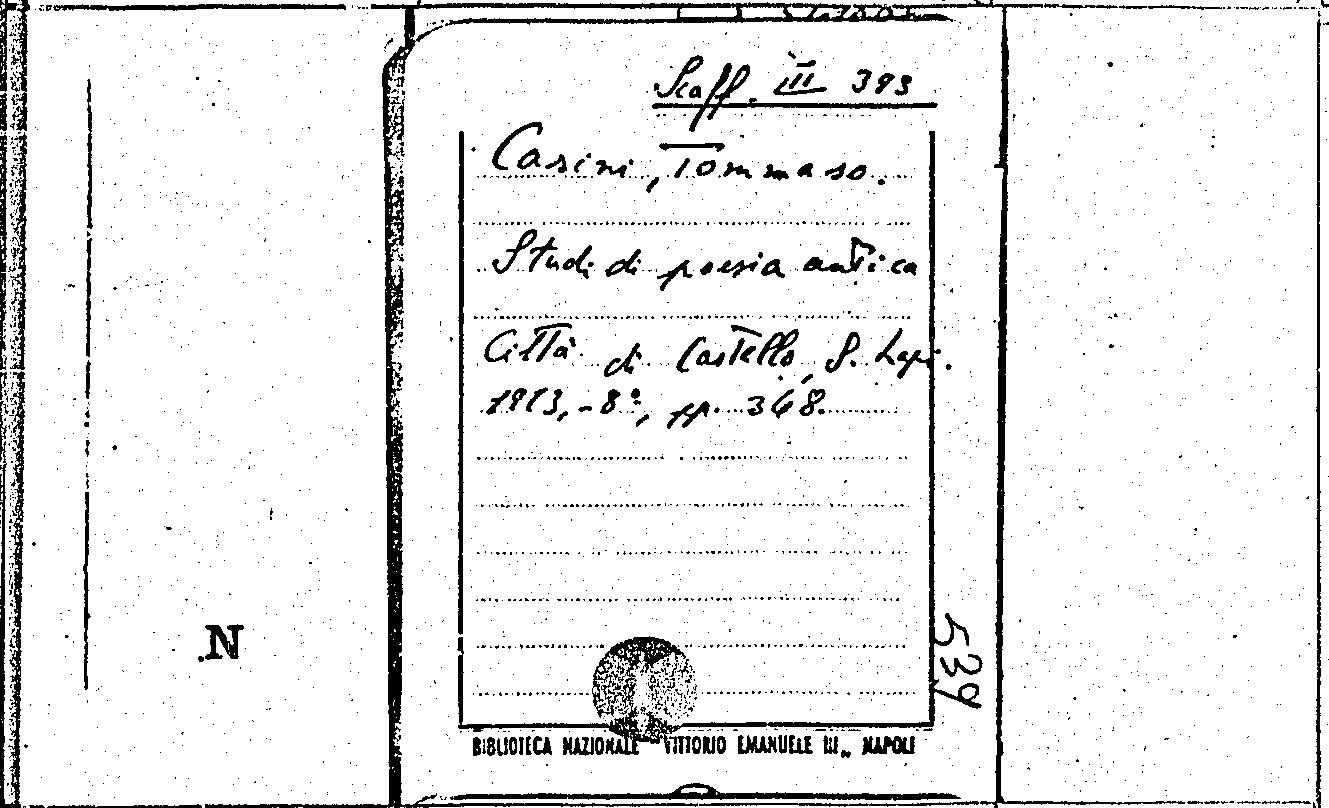 Scaff. III 393
Casini, Tommaso.
Studi di poesia antica
Città di Castello, S. Lapi.
1913, - 8º, pp. 368.
539
N
BIBLIOTECA NAZIONALE "VITTORIO EMANUELE III„ NAPOLI